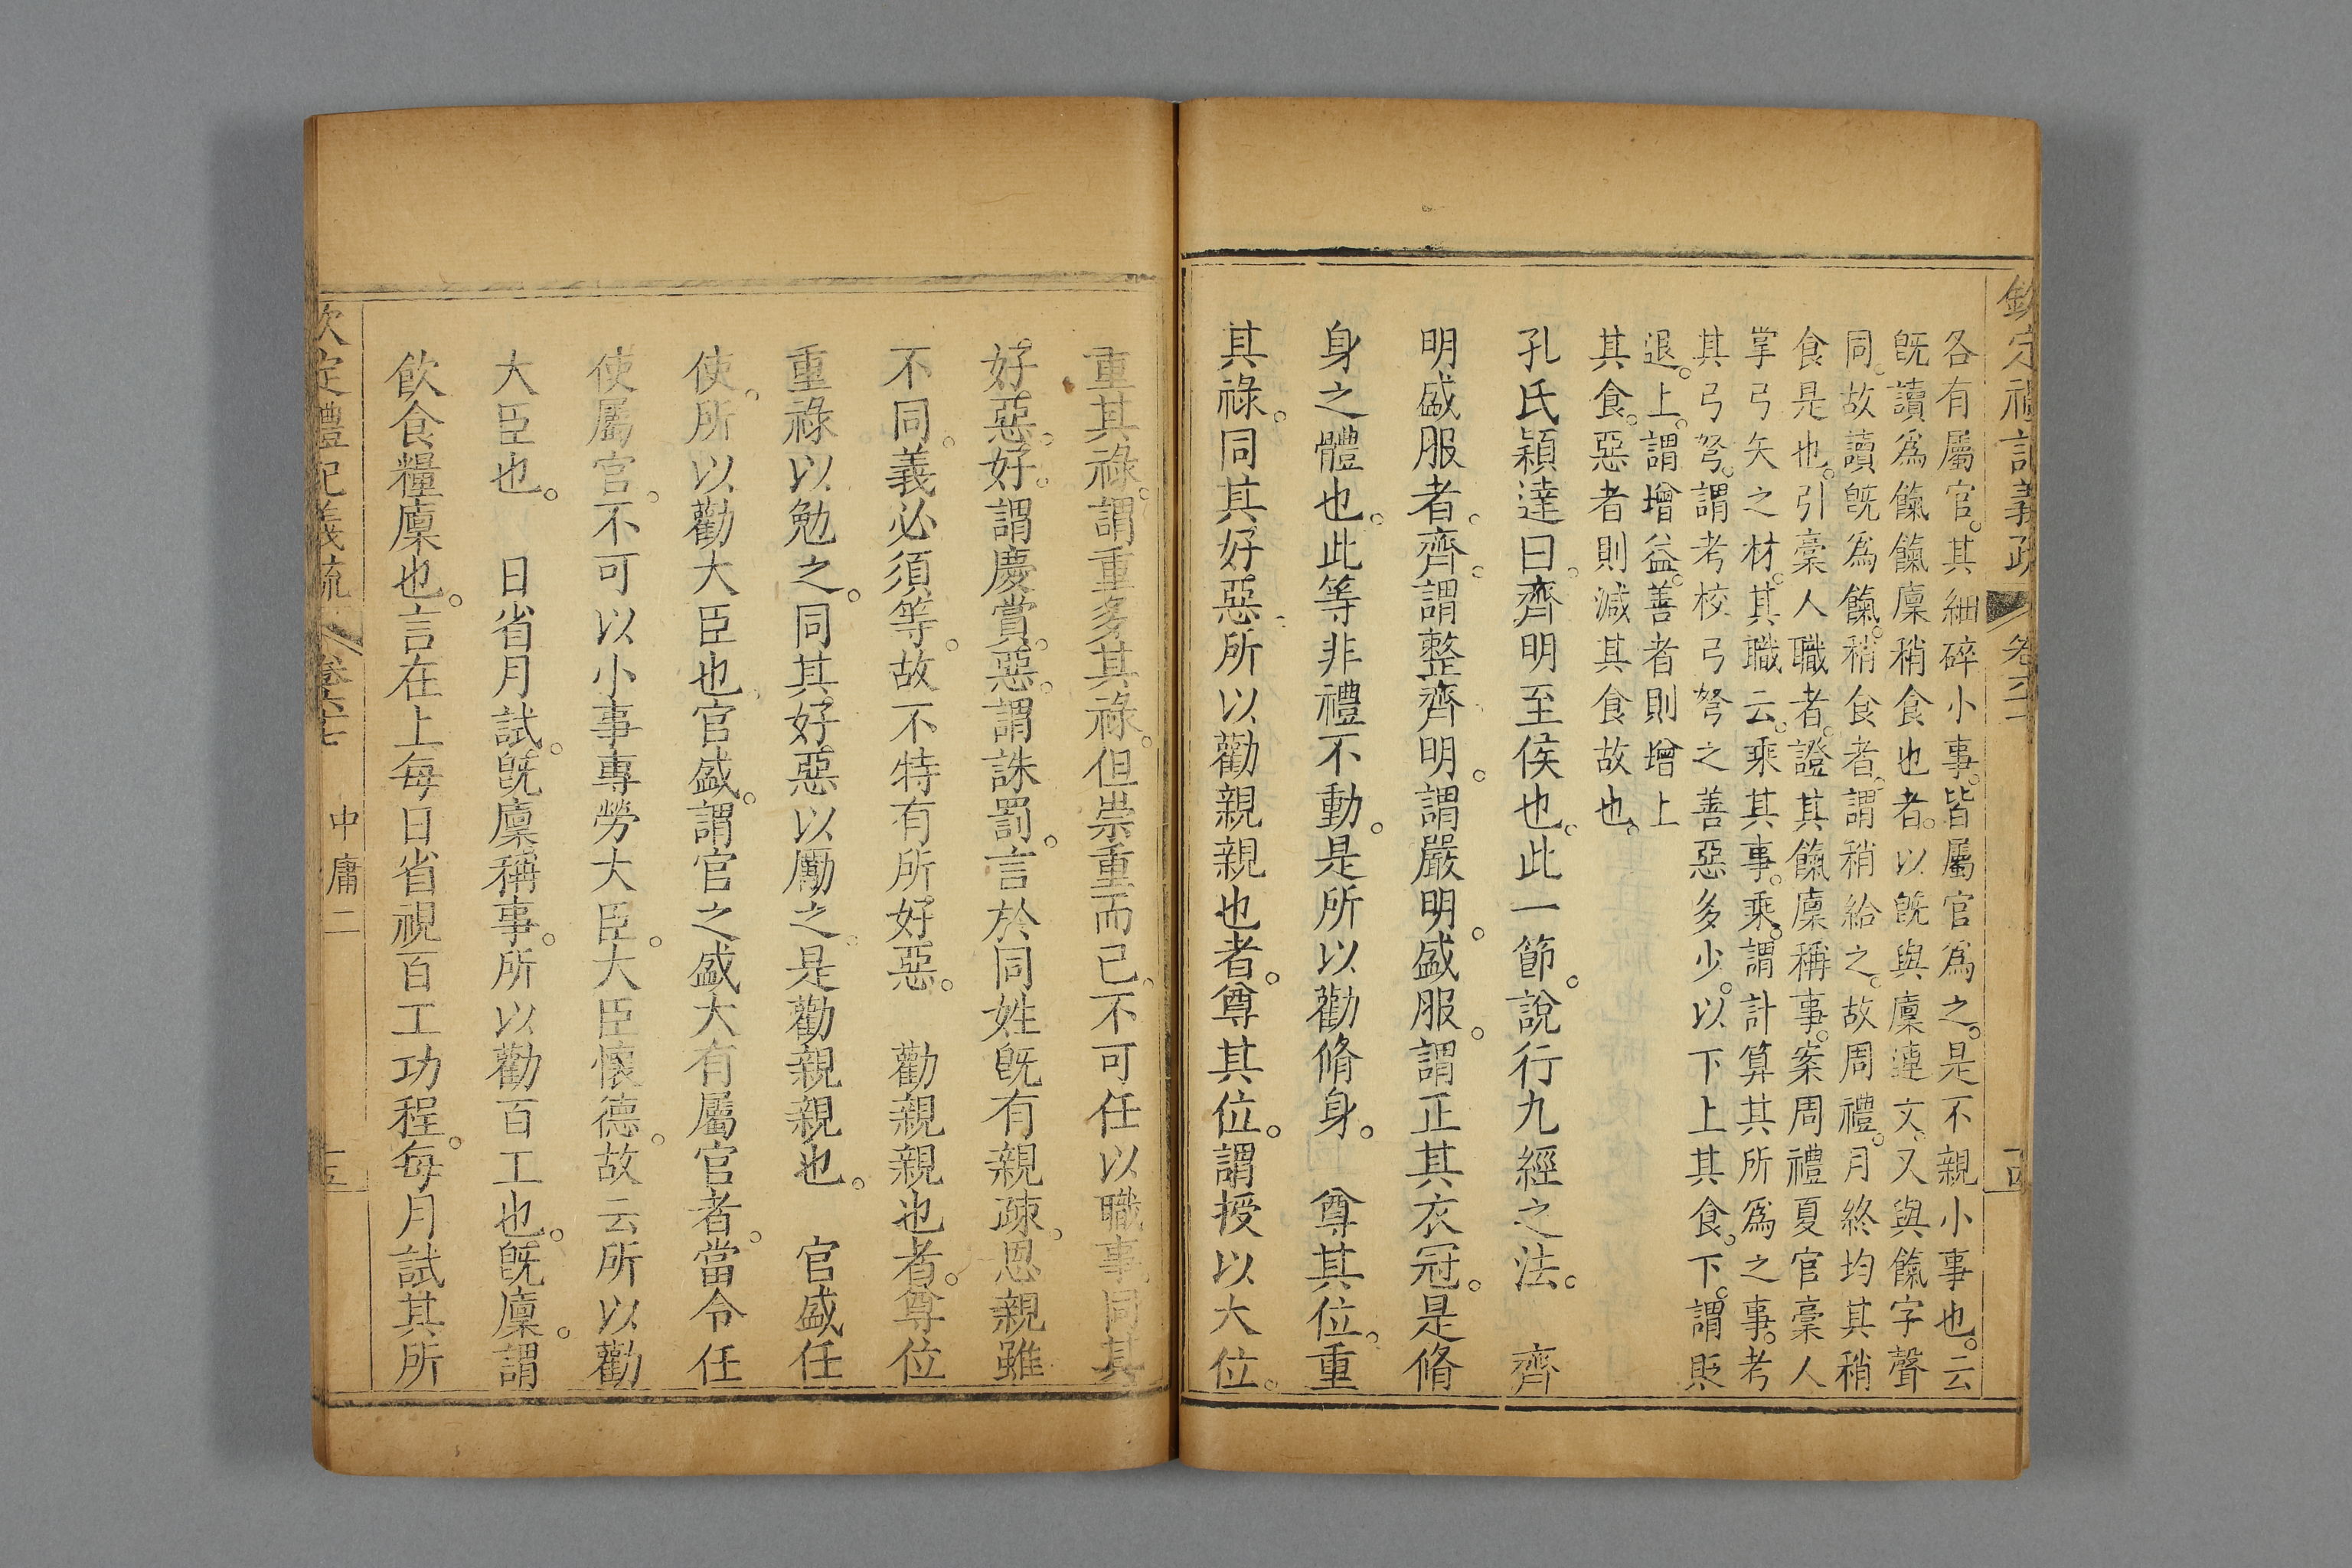 欽定禮記義疏 卷六十七 十四
各有屬官。其細碎小事。皆屬官爲之。是不親小事也。云
旣讀爲餼餼廩稍食也者。以旣與廩連文。又與餼字聲
同。故讀旣爲餼。稍食者。謂稍給之。故周禮。月終均其稍
食是也。引稾人職者。證其餼廩稱事。案周禮夏官稾人
掌弓矢之材。其職云。乘其事。乘。謂計算其所爲之事。考
其弓弩。謂考校弓弩之善惡多少。以下上其食。下。謂貶
退。上。謂增益。善者則增上
其食。惡者則減其食故也。
孔氏穎達曰。齊明至侯也。此一節。說行九經之法。　齊
明盛服者。齊。謂整齊明。謂嚴明。盛服。謂正其衣冠。是脩
身之體也。此等非禮不動。是所以勸脩身。　尊其位。重
其祿。同其好惡。所以勸親親也者。尊其位。謂授以大位。
重其祿。謂重多其祿。但崇重而已。不可任以職事。同其
好惡。好。謂慶賞。惡。謂誅罰。言於同姓旣有親疎。恩親雖
不同。義必須等。故不特有所好惡。　勸親親也者。尊位
重祿以勉之。同其好惡以勵之。是勸親親也。　官盛任
使。所以勸大臣也官盛。謂官之盛大有屬官者。當令任
使屬官。不可以小事專勞大臣。大臣懷德。故云所以勸
大臣也。　日省月試。旣廩稱事。所以勸百工也。旣廩。謂
飲食糧廩也。言在上每日省視百工功程。每月試其所
欽定禮記義疏 卷六十七 中庸二 十五